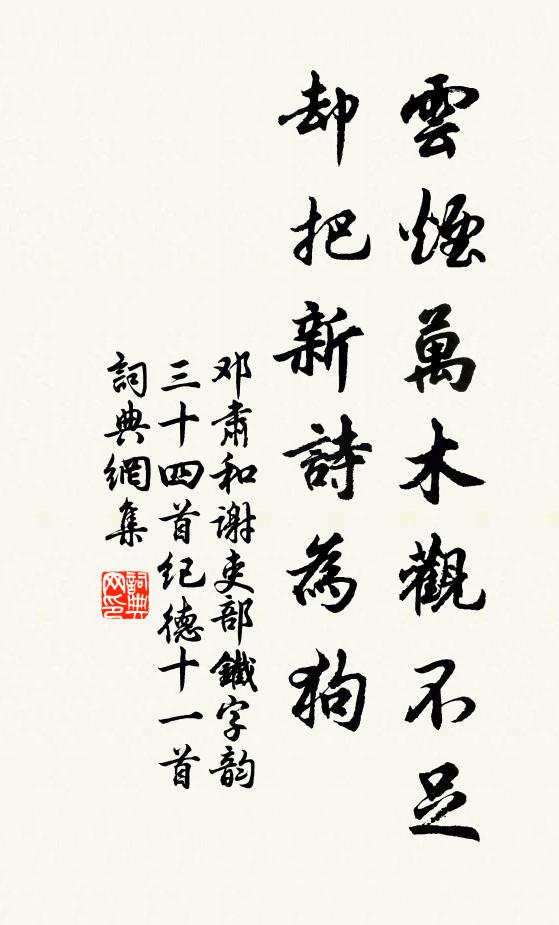 雲煙萬木觀不足
却把新詩為狗
邓肃和谢吏部鐵字韵
三十四首纪德十一首
詞典網集
詞典網印